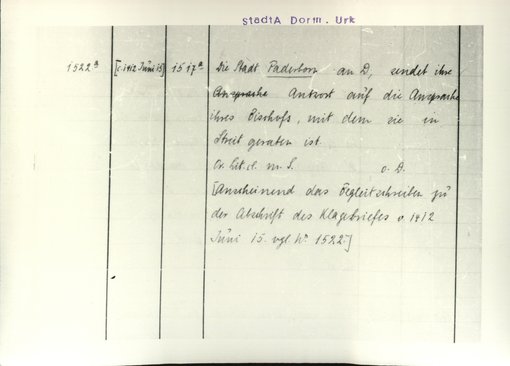 StadtA Dorm. Urk
1522a [c. 1412 Juni 15] 1517a Die Stadt Paderborn an D, sendet ihre
Ansprache Antwort auf die Ansprache
ihres Bischofs, mit dem sie in
Streit geraten ist.
Or. lit. cl. m. S. o. D.
[Anscheinend das Begleitschreiben zu
der Abschrift des Klagebriefes v. 1412
Juni 15. vgl. No 1522.]